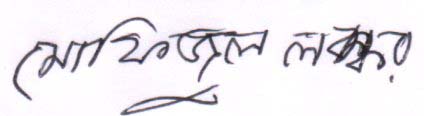 মোফিজুল লস্কর